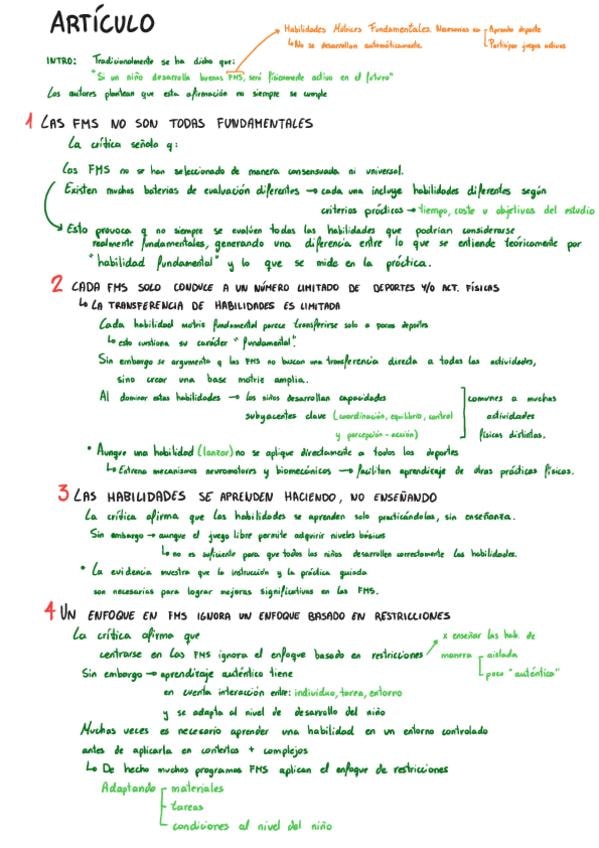 ARTÍCULO
Habilidades Motrices Fundamentales. Necesarias xa
Aprender deporte
Participar juegos activos
↳ No se desarrollan automáticamente.
INTRO: Tradicionalmente se ha dicho que:
"Si un niño desarrolla buenas FMS, será físicamente activo en el futuro"
Los autores plantean que esta afirmación no siempre se cumple
1 LAS FMS NO SON TODAS FUNDAMENTALES
La crítica señala q:
Las FMS no se han seleccionado de manera consensuada ni universal.
Existen muchas baterias de evaluación diferentes → cada una incluye habilidades diferentes según
criterios prácticos → tiempo, coste u objetivos del estudio
Esto provoca q no siempre se evalúen todas las habilidades que podrían considerarse
realmente fundamentales, generando una diferencia entre lo que se entiende teóricamente por
"habilidad fundamental" y lo que se mide en la práctica.
2 CADA FMS SOLO CONDUCE A UN NÚMERO LIMITADO DE DEPORTES Y/O ACT. FÍSICAS
↳ LA TRANSFERENCIA DE HABILIDADES ES LIMITADA
Cada habilidad motriz fundamental parece transferirse solo a pocos deportes
↳ esto cuestiona su carácter "fundamental".
Sin embargo se argumenta q las FMS no buscan una transferencia directa a todas las actividades,
sino crear una base motriz amplia.
Al dominar estas habilidades → los niños desarrollan capacidades
subyacentes clave (coordinación, equilibrio, control
y percepción-acción)
comunes a muchas
actividades
físicas distintas.
* Aunque una habilidad (lanzar) no se aplique directamente a todos los deportes
↳ Entrena mecanismos neuromotores y biomecánicos → facilitan aprendizaje de otras prácticas físicas.
3 LAS HABILIDADES SE APRENDEN HACIENDO, NO ENSEÑANDO
La crítica afirma que las habilidades se aprenden solo practicándolas, sin enseñanza.
Sin embargo → aunque el juego libre permite adquirir niveles básicos
↳ no es suficiente para que todos los niños desarrollen correctamente las habilidades.
* La evidencia muestra que la instrucción y la práctica guiada
son necesarias para lograr mejoras significativas en las FMS.
4 UN ENFOQUE EN FMS IGNORA UN ENFOQUE BASADO EN RESTRICCIONES
La crítica afirma que
centrarse en las FMS ignora el enfoque basado en restricciones
x enseñar las hab. de
manera
aislada
poco "auténtica"
Sin embargo → aprendizaje auténtico tiene
en cuenta interacción entre: individuo, tarea, entorno
y se adapta al nivel de desarrollo del niño
Muchas veces es necesario aprender una habilidad en un entorno controlado
antes de aplicarla en contextos + complejos
↳ De hecho muchos programas FMS aplican el enfoque de restricciones
Adaptando
materiales
tareas
condiciones al nivel del niño